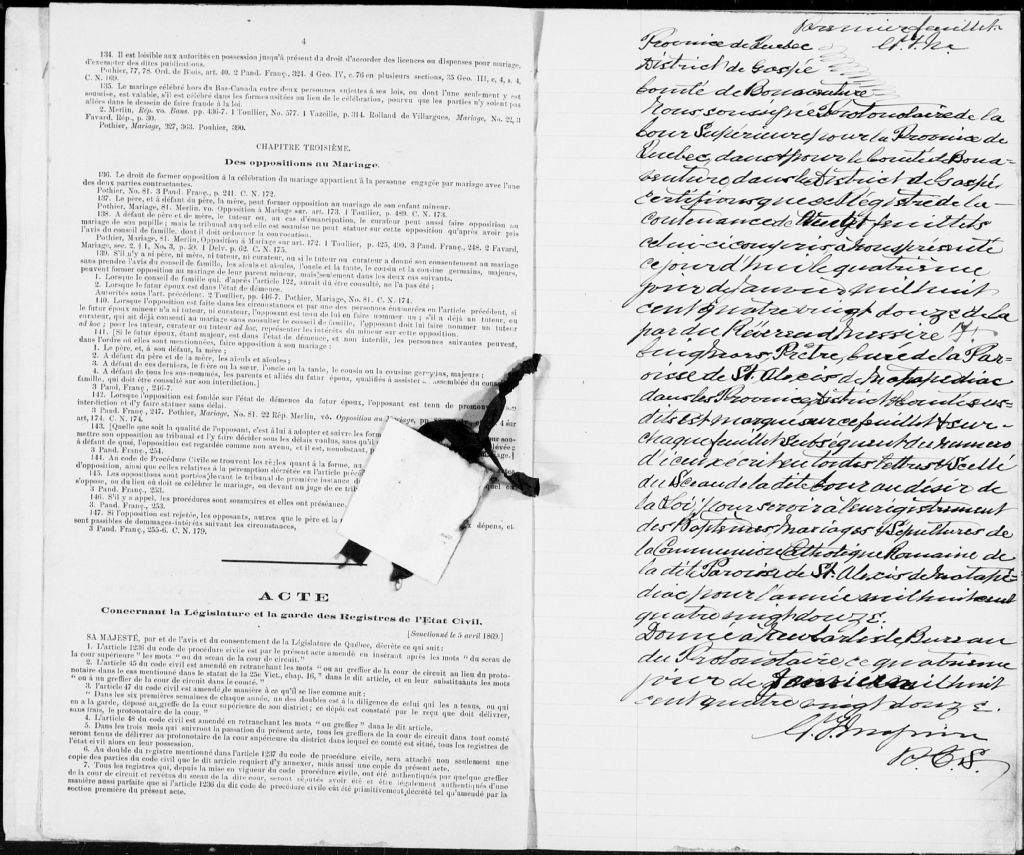 4
134. Il est loisible aux autorités en possession jusqu'à présent du droit d'accorder des licences ou dispenses pour mariage,
d'exempter des dites publications.
Pothier, 77, 78. Ord. de Blois, art. 40. 2 Pand. Franç., 324. 4 Geo. IV, c. 76 en plusieurs sections, 35 Geo. III, c. 4, s. 4,
C. N. 169.
135. Le mariage célébré hors du Bas-Canada entre deux personnes sujettes à ses lois, ou dont l'une seulement y est
soumise, est valable, s'il est célébré dans les formes usitées au lieu de la célébration, pourvu que les parties n'y soient pas
allées dans le dessein de faire fraude à la loi.
2. Merlin, Rép. vo. Bans. pp. 436-7. 1 Toullier, No. 577. 1 Vazeille, p. 314. Rolland de Villargues, Mariage, No. 22, 3
Favard, Rép., p. 30.
Pothier, Mariage, 227, 363. Pouhier, 390.
CHAPITRE TROISIÈME.
Des oppositions au Mariage.
136. Le droit de former opposition à la célébration du mariage appartient à la personne engagée par mariage avec l'une
des deux parties contractantes.
Pothier, No. 81. 3 Pand. Franç., p. 241. C. N. 172.
137. Le père, et à défaut du père, la mère, peut former opposition au mariage de son enfant mineur.
Pothier, Mariage, 81. Merlin, vo. Opposition à Mariage sur art. 173. 1 Toullier, p. 489. C. N. 173.
138. A défaut de père et de mère, le tuteur ou, au cas d'émancipation, le curateur peut aussi faire opposition au
mariage de son pupille ; mais le tribunal auquel elle est soumise ne peut statuer sur cette opposition qu'après avoir pris
l'avis du conseil de famille, dont il doit ordonner la convocation.
Pothier, Mariage, 81. Merlin, Opposition à Mariage sur art. 172. 1 Toullier, p. 425, 490. 3 Pand. Franç., 248. 2 Favard,
Mariage, sec. 2, § 1, No. 3, p. 59. 1 Delv. p. 62. C. N. 175.
139. S'il n'y a ni père, ni mère, ni tuteur, ni curateur, ou si le tuteur ou curateur a donné son consentement au mariage
sans prendre l'avis du conseil de famille, les aïeuls et aïeules, l'oncle et la tante, le cousin et la cousine germains, majeurs,
peuvent former opposition au mariage de leur parent mineur, mais seulement dans les deux cas suivants.
1. Lorsque le conseil de famille qui, d'après l'article 122, aurait dû être consulté, ne l'a pas été ;
2. Lorsque le futur époux est dans l'état de démence.
Autorités sous l'art. précédent. 2 Toullier, pp. 446-7. Pothier, Mariage, No. 81. C. N. 174.
140. Lorsque l'opposition est faite dans les circonstances et par une des personnes énumérées en l'article précédent, si
le futur époux mineur n'a ni tuteur, ni curateur, l'opposant est tenu de lui en faire nommer un ; s'il a déjà un tuteur, ou
curateur, qui ait déjà consenti au mariage sans consulter le conseil de famille, l'opposant doit lui faire nommer un tuteur
ad hoc ; pour les tuteur, curateur ou tuteur ad hoc, représenter les intérêts du mineur sur cette opposition.
141. [Si le futur époux, étant majeur, est dans l'état de démence, et non interdit, les personnes suivantes peuvent,
dans l'ordre où elles sont mentionnées, faire opposition à son mariage :
1. Le père, et, à son défaut, la mère ;
2. A défaut du père et de la mère, les aïeuls et aïeules ;
3. A défaut de ces derniers, le frère ou la sœur, l'oncle ou la tante, le cousin ou la cousine germains, majeurs ;
4. A défaut de tous les sus-nommés, les parents et alliés du futur époux, qualifiés à assister assemblée du
famille, qui doit être consulté sur son interdiction.]
3 Pand. Franç., 246-7.
142. Lorsque l'opposition est fondée sur l'état de démence du futur époux, l'opposant est tenu de
interdiction et d'y faire statuer sans délai.
3 Pand. Franç., 247. Pothier, Mariage, No. 81. 22 Rép. Merlin, vo. Opposition au
art, 174. C. N. 174.
143. [Quelle que soit la qualité de l'opposant, c'est à lui à adopter et suivre les
mettre son opposition au tribunal et l'y faire décider sous les délais voulus, sans qu'il
à défaut de quoi, l'opposition est regardée comme non avenu, et il est, nonobstant,
3 Pand. Franç., 254.
144. Au code de Procédure Civile se trouvent les règles quant à la forme, au
d'opposition, ainsi que celles relatives à la peremption décrétée en l'article
145. Les oppositions sont portées devant le tribunal de première instance
s'oppose, ou du lieu où doit se célébrer le mariage, ou devant un juge de ce
3 Pand. Franç., 253.
146. S'il y a appel, les procédures sont sommaires et elles ont préséance.
3 Pand. Franç., 253.
147. Si l'opposition est rejetée, les opposants, autres que le père et la dépens, et
sont passibles de dommages-intérêts suivant les circonstances,
3 Pand. Franç., 255-6. C. N. 179.
ACTE
Concernant la Législature et la garde des Registres de l'Etat Civil.
[Sanctionné le 5 avril 1869.]
SA MAJESTÉ, par et de l'avis et du consentement de la Législature de Québec, décrète ce qui suit :
1. L'article 1236 du code de procédure civile est par le présent acte amendé en insérant après les mots " du sceau de
la cour supérieure " les mots " ou du sceau de la cour de circuit."
2. L'article 45 du code civil est amendé en retranchant les mots " ou au greffier de la cour de circuit au lieu du proto-
notaire dans le cas mentionné dans le statut de la 25e Vict., chap. 16," dans le dit article, et en leur substituants les mots
" ou à un greffier de la cour de circuit dans le comté."
3. l'article 47 du code civil est amendé de manière à ce qu'il se lise comme suit :
" Dans les six premières semaines de chaque année, un des doubles est à la diligence de celui qui les a tenus, ou qui
en a la garde, déposé au greffe de la cour supérieure de son district ; ce dépôt est constaté par le reçu que doit délivrer,
sans frais, le protonotaire de la cour."
4. L'article 48 du code civil est amendé en retranchant les mots " ou greffier " dans le dit article.
5. Dans les trois mois qui suivront la passation du présent acte, tous les greffiers de la cour de circuit dans tout comté
seront tenus de délivrer au protonotaire de la cour supérieure du district dans lequel ce comté est situé, tous les registres de
l'état civil alors en leur possession.
6. Au double du registre mentionné dans l'article 1237 du code de procédure civile, sera attaché non seulement une
copie des parties du code civil que le dit article requiert d'y annexer, mais aussi une copie du présent acte.
7. Tous les registres qui, depuis la mise en vigueur du code procédure civile, ont été authentiqués par quelque greffier
de la cour de circuit et revêtus du sceau de la dite cour, seront réputés avoir été et être légalement authentiqués d'une
manière aussi parfaite que si l'article 1236 du dit code de procédure civile eût été primitivement décrété tel qu'amendé par la
section première du présent acte.
Premier feuillet.
Province de Quebec
District de Gaspé
Comté de Bonaventure
Nous soussigné Protonotaire de la
Cour Supérieure pour la Province de
Quebec, dans & pour le Comté de Bona-
venture, dans le District de Gaspé,
certifions que ce Régistre de la
contenance de Vingt feuillets
celui-ci compris a nous présenté
ce jour d'hui le quatrième
jour de Janvier mil huit
cent quatre vingt douze de la
part du Révérend Messire
Vingt mars, Prêtre, Curé de la Pa-
roisse de St. Alexis de Matapediac
dans les Province, District & Comté sus-
dits est marqué sur ce feuillet & sur
chaque feuillet subséquent du numéro
d'iceux écrit en toutes lettres & Scellé
du Sceau de la dite Cour au désir de
la Loi, pour servir à l'enrégistrement
des Baptêmes, Mariages & Sépultures de
la Communion Catholique Romaine de
la dite Paroisse de St. Alexis de Matapé-
diac pour l'année mil huit cent
quatre vingt douze.
Donné a New Carlisle Bureau
du Protonotaire ce quatrième
jour de Janvier mil huit
cent quatre vingt douze.
P.C.S.